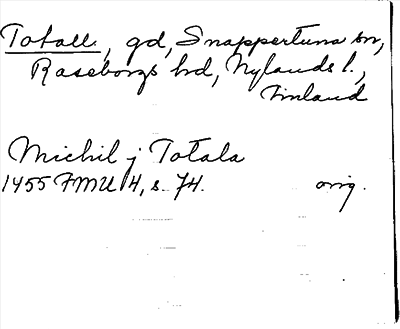 Totall, gd, Snappertuna sn,
Raseborgs hd, Nylands l.,
Finland
Michil j Totala
1455 FMU 4, s. 74.
orig.